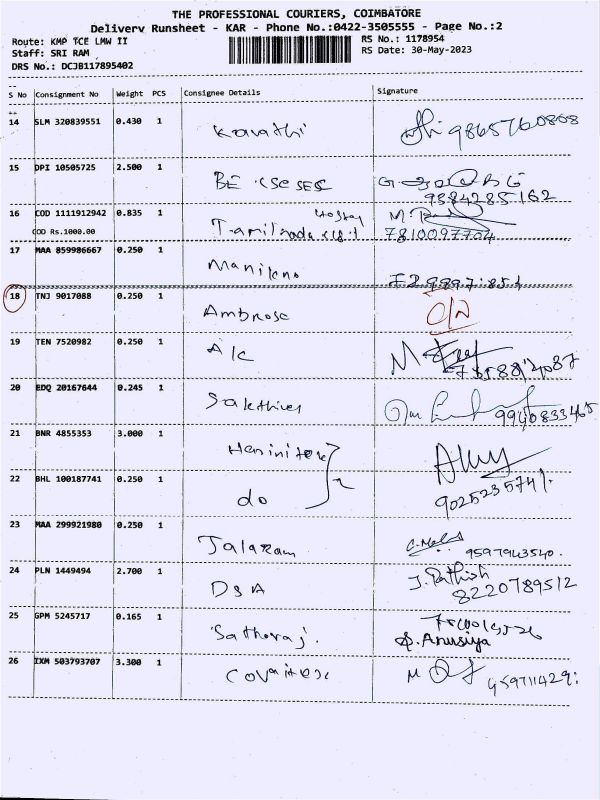 THE PROFESSIONAL COURIERS, COIMBATORE
Delivery Runsheet - KAR - Phone No.:0422-3505555 - Page No.:2
Route: KMP TCE LMW II RS No.: 1178954
Staff: SRI RAM RS Date: 30-May-2023
DRS No.: DCJB117895402
S No Consignment No Weight PCS Consignee Details Signature
14 SLM 320839551 0.430 1
15 DPI 10505725 2.500 1 BE CSE SEC
9384285162
16 COD 1111912942 0.835 1
COD Rs.1000.00 7810097704
17 MAA 859986667 0.250 1
18 TNJ 9017088 0.250 1 Ambrose
19 TEN 7520982 0.250 1
20 EDQ 20167644 0.245 1 Sakthivel 9940833465
21 BNR 4855353 3.000 1
22 BHL 100187741 0.250 1 do
23 MAA 299921980 0.250 1 Jalaram 9597943540.
24 PLN 1449494 2.700 1 DSA J. Rathish
8220789512
25 GPM 5245717 0.165 1 Sathoraj. S. Anusiya
26 IXM 503793707 3.300 1